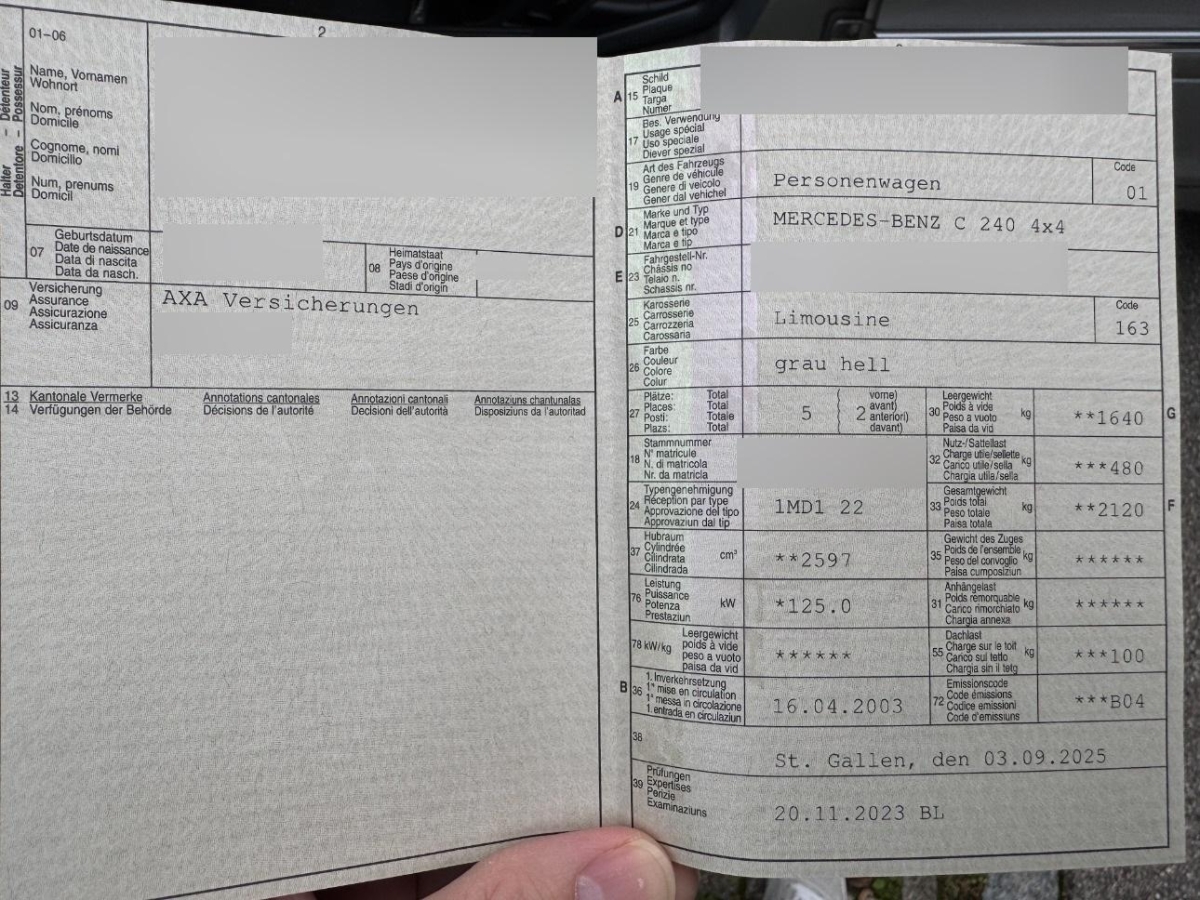 2
01-06
Name, Vornamen
Wohnort
Nom, prénoms
Domicile
Cognome, nomi
Domicilio
Num, prenums
Domicil
Halter – Détenteur
Detentore – Possessur
07
Geburtsdatum
Date de naissance
Data di nascita
Data da nasch.
08
Heimatstaat
Pays d'origine
Paese d'origine
Stadi d'origin
09
Versicherung
Assurance
Assicurazione
Assicuranza
AXA Versicherungen
13 Kantonale Vermerke Annotations cantonales Annotazioni cantonali Annotaziuns chantunalas
14 Verfügungen der Behörde Décisions de l'autorité Decisioni dell'autorità Disposiziuns da l'autoritad
A 15
Schild
Plaque
Targa
Numer
17
Bes. Verwendung
Usage spécial
Uso speciale
Diever spezial
19
Art des Fahrzeugs
Genre de véhicule
Genere di veicolo
Gener dal vehichel
Personenwagen
Code
01
D 21
Marke und Typ
Marque et type
Marca e tipo
Marca e tip
MERCEDES-BENZ C 240 4x4
E 23
Fahrgestell-Nr.
Châssis no
Telaio n.
Schassis nr.
25
Karosserie
Carrosserie
Carrozzeria
Carossaria
Limousine
Code
163
26
Farbe
Couleur
Colore
Colur
grau hell
27
Plätze: Total
Places: Total
Posti: Totale
Plazs: Total
5
2
vorne)
avant)
anteriori)
davant)
30
Leergewicht
Poids à vide
Peso a vuoto
Paisa da vid
kg
**1640
G
18
Stammnummer
N° matricule
N. di matricola
Nr. da matricla
32
Nutz-/Sattellast
Charge utile/sellette
Carico utile/sella
Chargia utila/sella
kg
***480
24
Typengenehmigung
Réception par type
Approvazione del tipo
Approvaziun dal tip
1MD1 22
33
Gesamtgewicht
Poids total
Peso totale
Paisa totala
kg
**2120
F
37
Hubraum
Cylindrée
Cilindrata
Cilindrada
cm³
**2597
35
Gewicht des Zuges
Poids de l'ensemble
Peso del convoglio
Paisa cumposiziun
kg
******
76
Leistung
Puissance
Potenza
Prestaziun
kW
*125.0
31
Anhängelast
Poids remorquable
Carico rimorchiato
Chargia annexa
kg
******
78 kW/kg
Leergewicht
poids à vide
peso a vuoto
paisa da vid
******
55
Dachlast
Charge sur le toit
Carico sul tetto
Chargia sin il tetg
kg
***100
B 36
1. Inverkehrsetzung
1re mise en circulation
1a messa in circolazione
1. entrada en circulaziun
16.04.2003
72
Emissionscode
Code émissions
Codice emissioni
Code d'emissiuns
***B04
38
St. Gallen, den 03.09.2025
39
Prüfungen
Expertises
Perizie
Examinaziuns
20.11.2023 BL